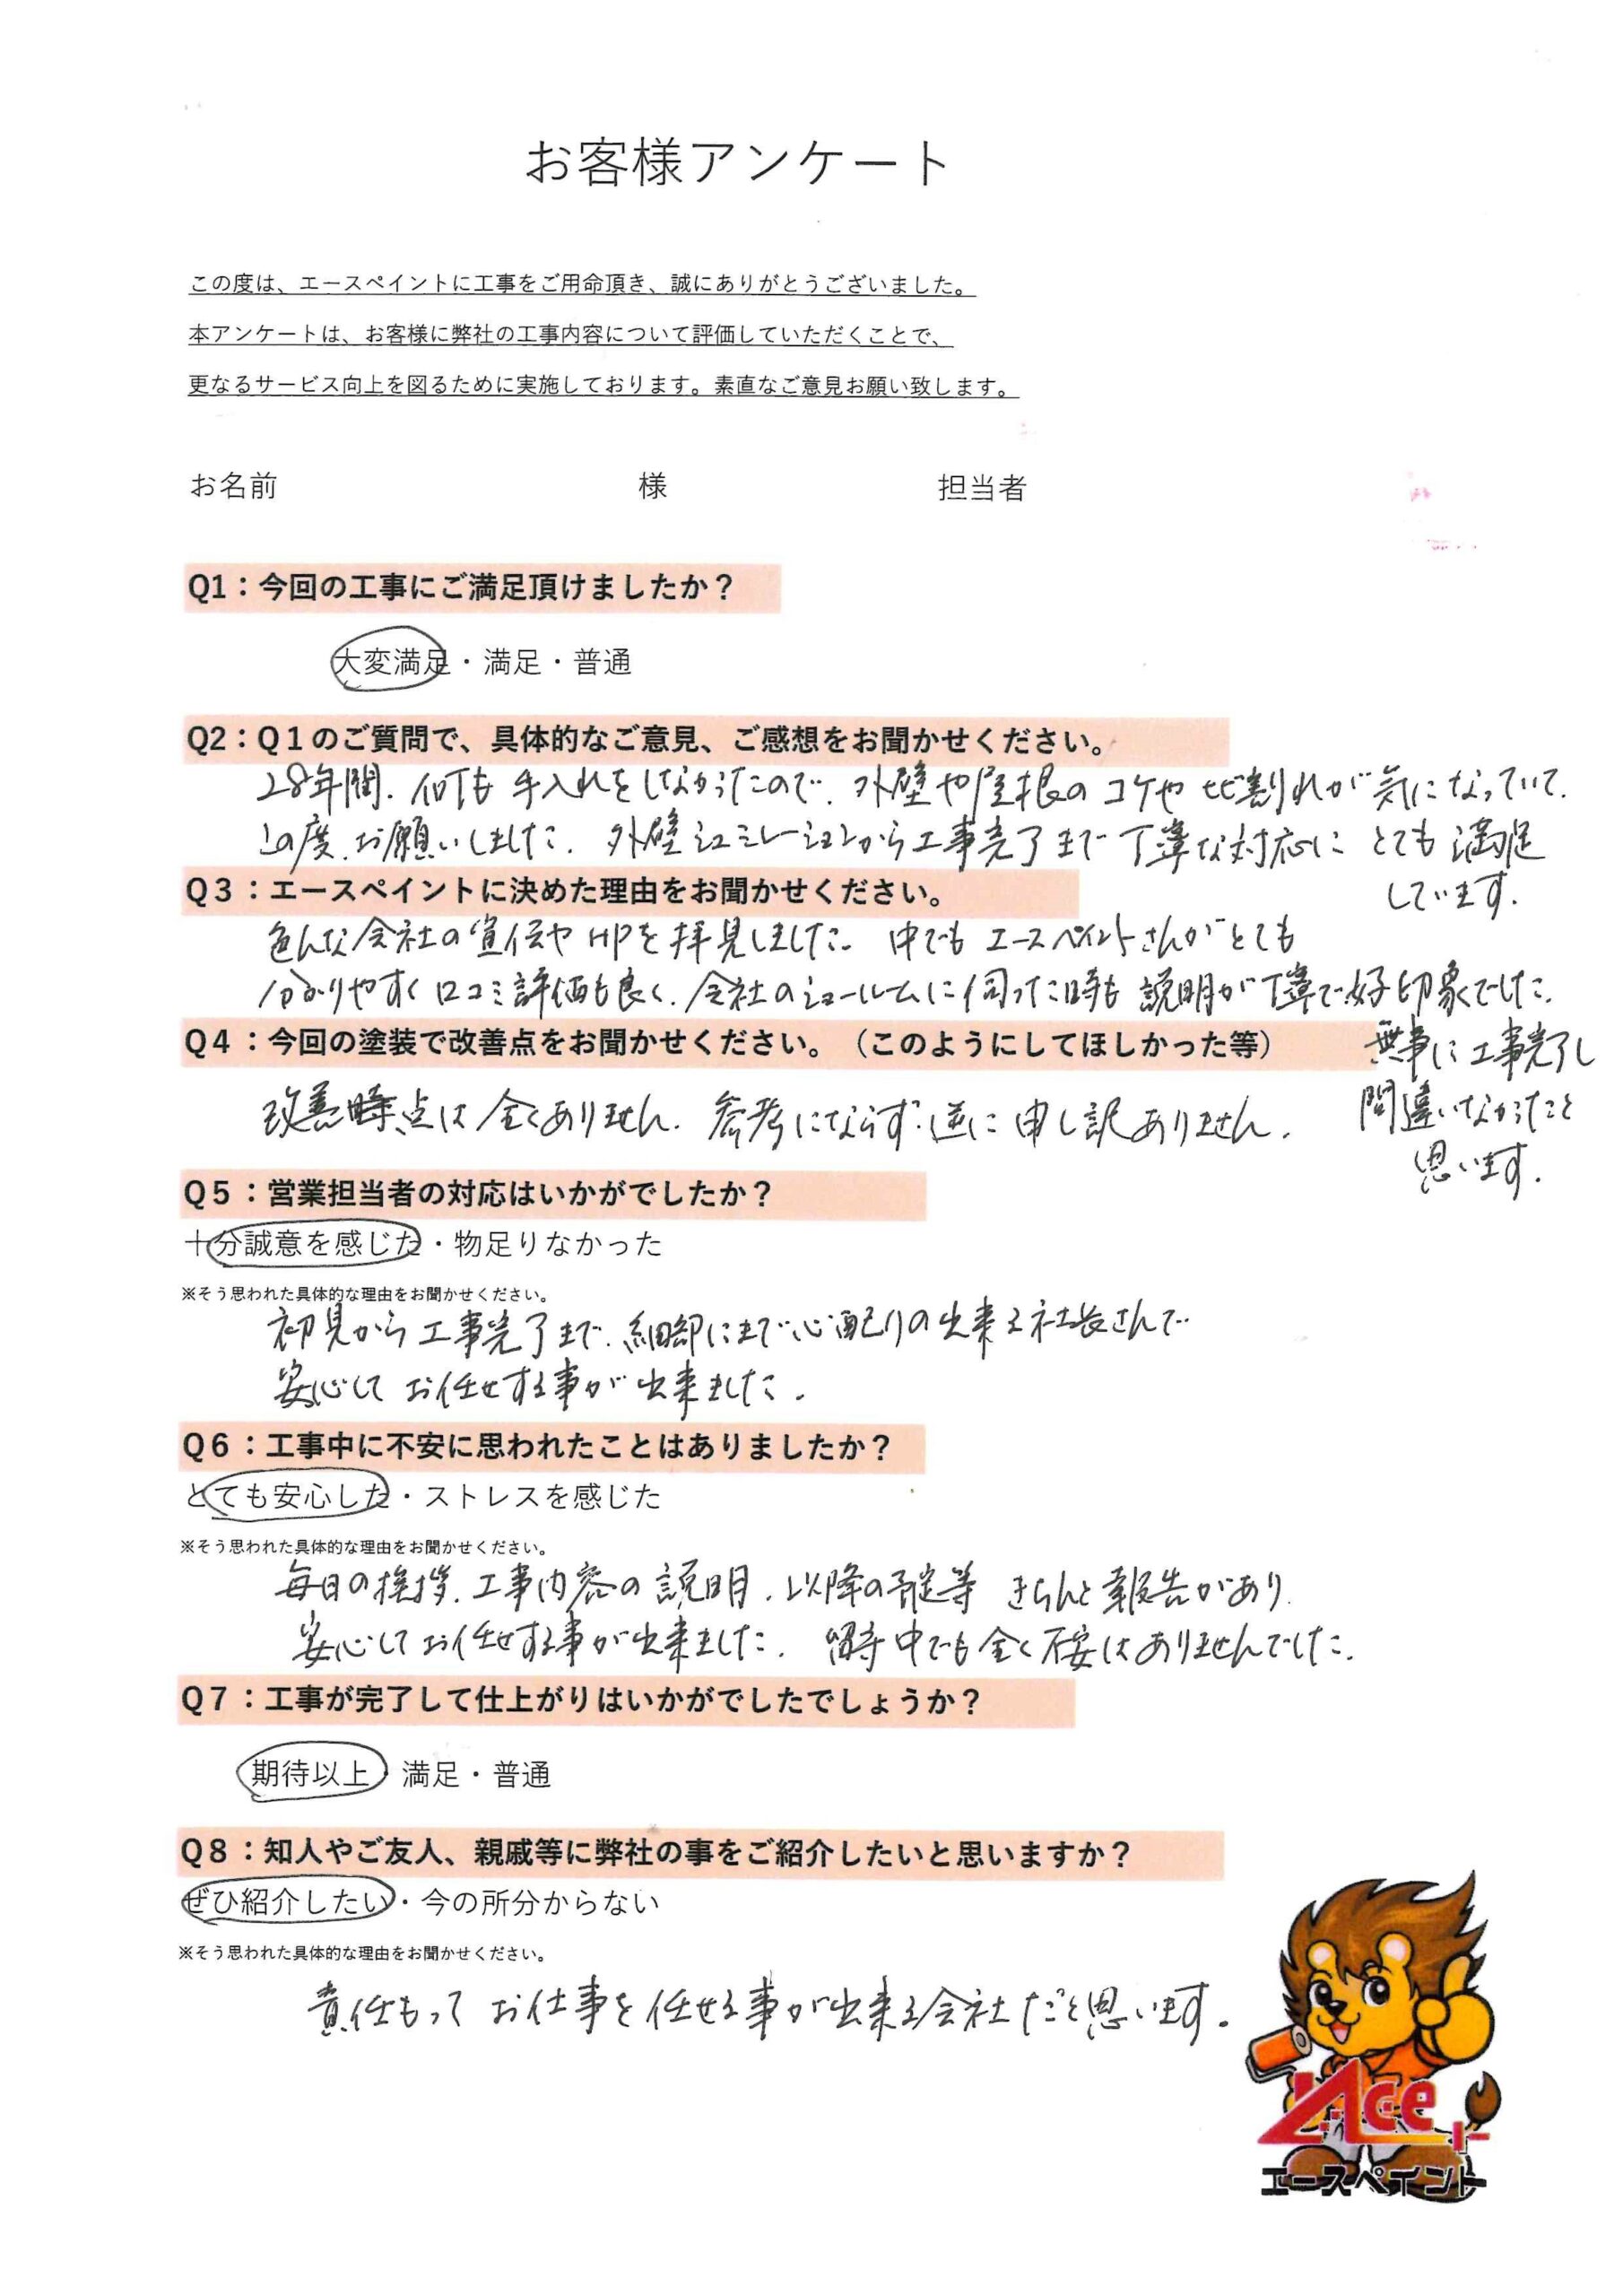 お客様アンケート
この度は、エースペイントに工事をご用命頂き、誠にありがとうございました。
本アンケートは、お客様に弊社の工事内容について評価していただくことで、
更なるサービス向上を図るために実施しております。素直なご意見お願い致します。
お名前 様 担当者
Q1：今回の工事にご満足頂けましたか？
大変満足・満足・普通
Q2：Q１のご質問で、具体的なご意見、ご感想をお聞かせください。
28年間、何も手入れをしなかったので、外壁や屋根のコケやヒビ割れが気になっていて、
この度、お願いしました。外壁シュミレーションから工事完了まで丁寧な対応にとても満足
しています。
Q３：エースペイントに決めた理由をお聞かせください。
色んな会社の宣伝やHPを拝見しました。中でもエースペイントさんがとても
分かりやすく口コミ評価も良く、会社のショールームに伺った時も説明が丁寧で好印象でした。
無事に工事完了し
間違いなかったと
思います。
Q４：今回の塗装で改善点をお聞かせください。（このようにしてほしかった等）
改善点は全くありません。参考にならず、逆に申し訳ありません。
Q５：営業担当者の対応はいかがでしたか？
十分誠意を感じた・物足りなかった
※そう思われた具体的な理由をお聞かせください。
初見から工事完了まで、細部にまで心配りの出来る社長さんで
安心してお任せする事が出来ました。
Q６：工事中に不安に思われたことはありましたか？
とても安心した・ストレスを感じた
※そう思われた具体的な理由をお聞かせください。
毎日の挨拶、工事内容の説明、以降の予定等 きちんと報告があり、
安心してお任せする事が出来ました。留守中でも全く不安はありませんでした。
Q７：工事が完了して仕上がりはいかがでしたでしょうか？
期待以上・満足・普通
Q８：知人やご友人、親戚等に弊社の事をご紹介したいと思いますか？
ぜひ紹介したい・今の所分からない
※そう思われた具体的な理由をお聞かせください。
責任もってお仕事を任せる事が出来る会社だと思います。
Ace
エースペイント